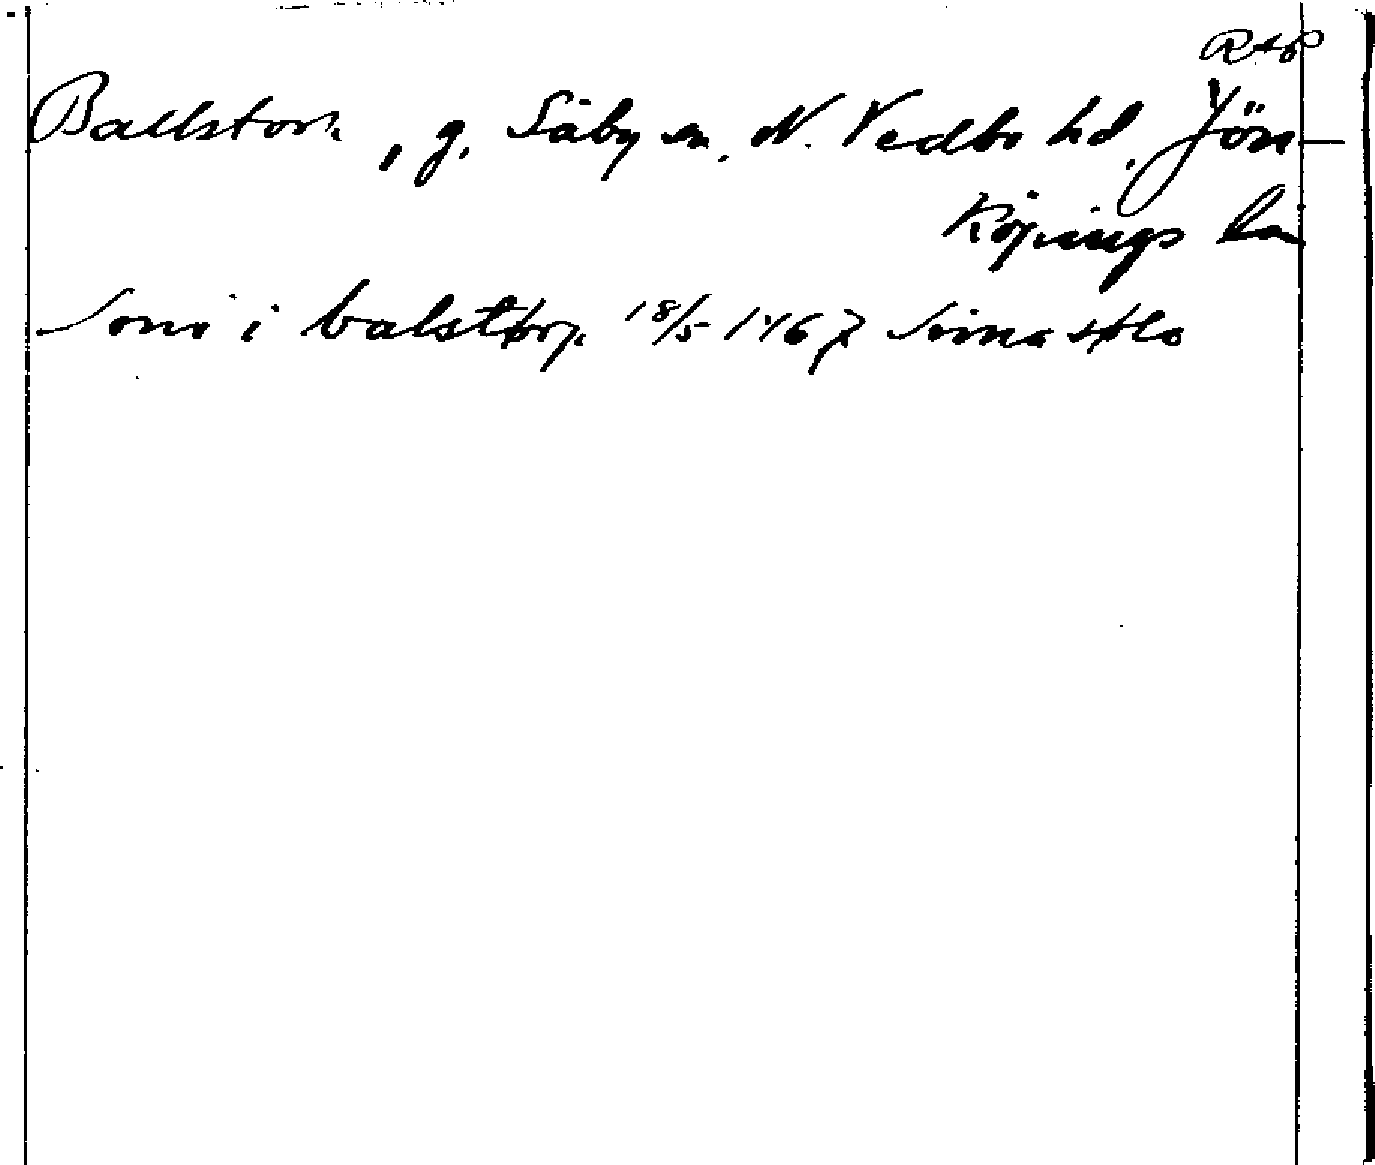 RAP
Ballstorp, g. Säby sn. N. Vedbo hd, Jön-
köpings län
i balstorp 18/5 1467